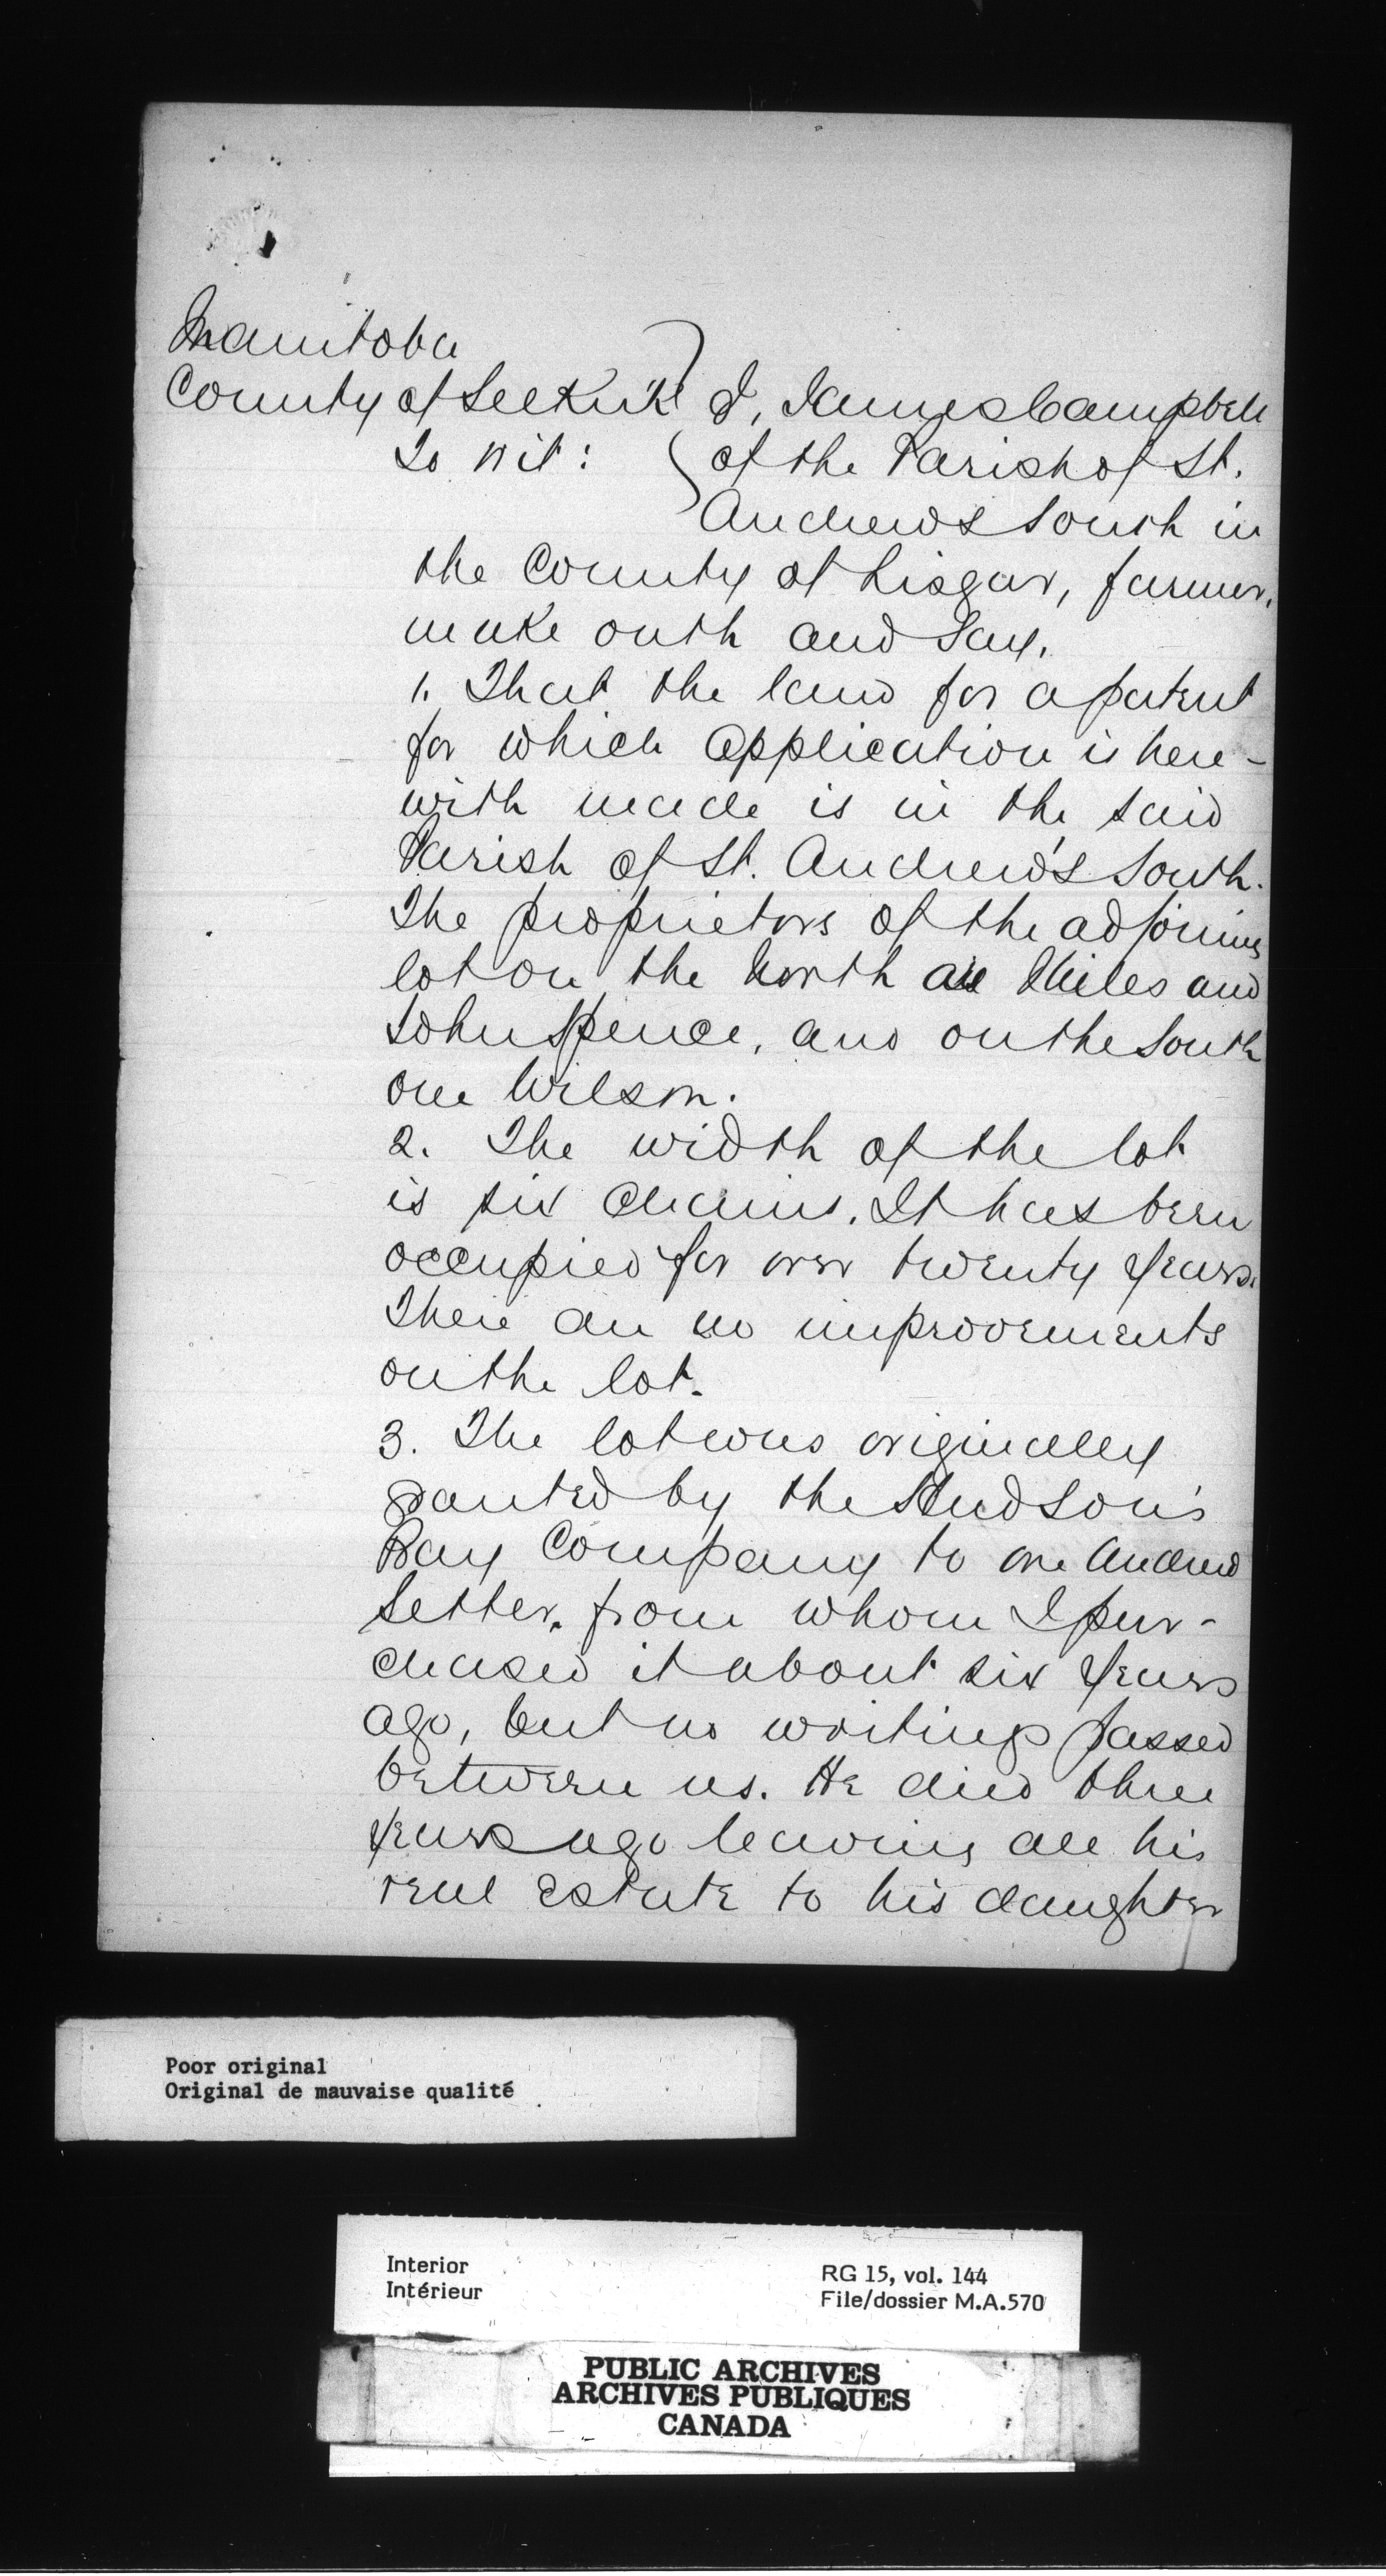 Manitoba
County of Selkirk
To wit:
I, James Campbell
of the Parish of St.
Andrews South in
the County of Lisgar, farmer,
make oath and say.
1. That the land for a patent
for which application is here-
with made is in the said
Parish of St. Andrew's South.
The proprietors of the adjoining
lot on the North are Miles and
John Spence, and on the South
one Wilson.
2. The width of the lot
is six chains. It has been
occupied for over twenty years.
There are no improvements
on the lot.
3. The lot was originally
granted by the Hudson's
Bay Company to one Andrew
Setter, from whom I pur-
chased it about six years
ago, but no writings passed
between us. He died three
years ago leaving all his
real estate to his daughter
Poor original
Original de mauvaise qualité
Interior
Intérieur
RG 15, vol. 144
File/dossier M.A.570
PUBLIC ARCHIVES
ARCHIVES PUBLIQUES
CANADA